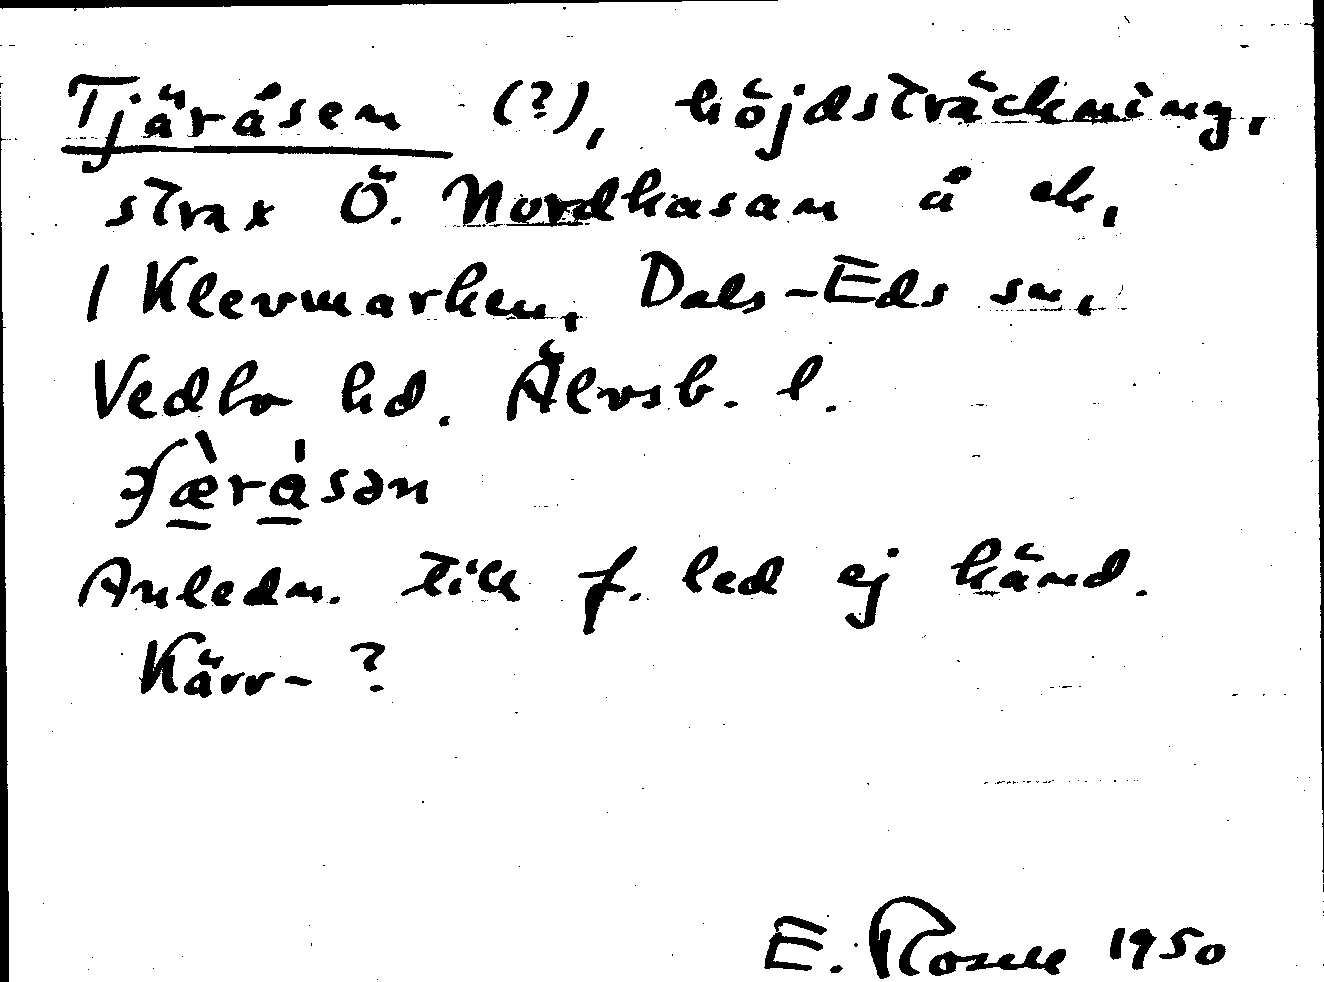 Tjäråsen (?), höjdsträckning,
strax Ö. Nordkasan å ek,
1 Klevmarken, Dals-Eds sn,
Vedbo hd. Älvsb. l.
ʃæ̀råsən
Anledn. till f. led ej känd.
Kärr- ?
E. Rosell 1950